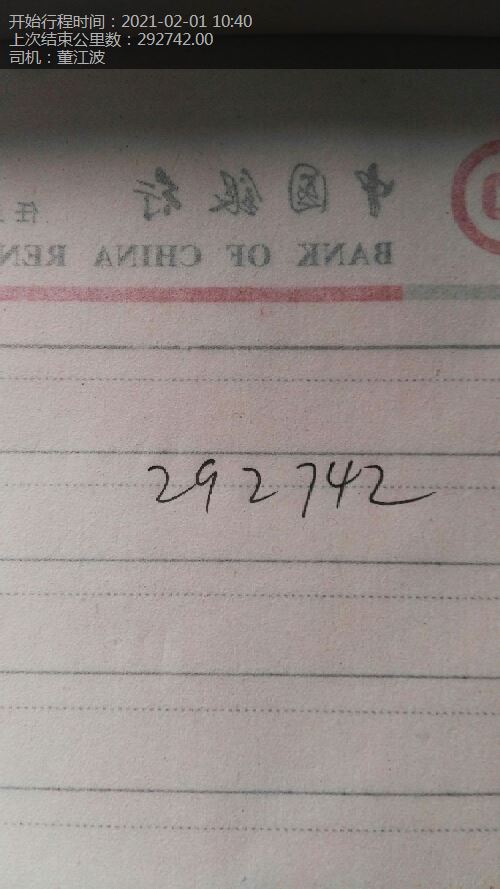 开始行程时间：2021-02-01 10:40
上次结束公里数：292742.00
司机：董江波
中国银行
BANK OF CHINA REN
292742